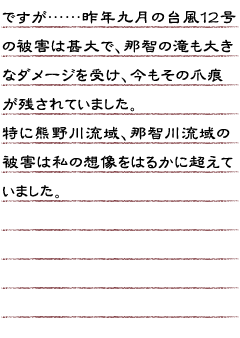 ですが……昨年九月の台風12号
の被害は甚大で、那智の滝も大き
なダメージを受け、今もその爪痕
が残されていました。
特に熊野川流域、那智川流域の
被害は私の想像をはるかに超えて
いました。